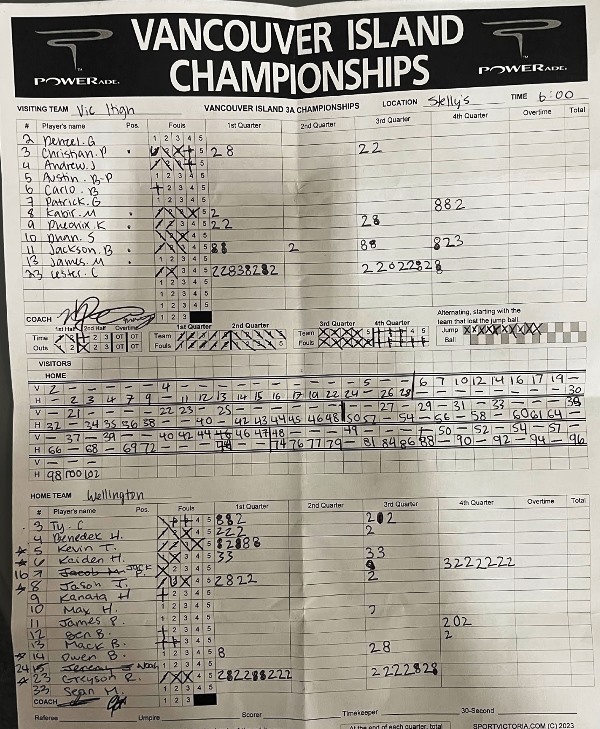 VANCOUVER ISLAND
CHAMPIONSHIPS
POWERADE POWERADE
VISITING TEAM Vic High VANCOUVER ISLAND 3A CHAMPIONSHIPS LOCATION Stelly's TIME 6:00
# Player's name Pos. Fouls 1st Quarter 2nd Quarter 3rd Quarter 4th Quarter Overtime Total
2 Denzel.G 1 2 3 4 5
3 Christian.P 28 22
4 Andrew.J
5 Austin.B-P 1 2 3 4 5
6 Carlo.B 2 3 4 5
7 Patrick.G 1 2 3 4 5 882
8 Kabir.M 2
9 Pheonix.K 22 28
10 Dhan.S
11 Jackson.B 88 2 88 823
13 James.M 1 2 3 4 5
23 Lester.C 22838282 22022828
1 2 3 4 5
1 2 3 4 5
COACH 1 2 3
1st Half 2nd Half Overtime
Time Outs OT OT
1st Quarter 2nd Quarter
Team Fouls
3rd Quarter 4th Quarter
Team Fouls
Alternating, starting with the team that lost the jump ball.
Jump Ball
VISITORS
HOME
V 2 - - - - 4 - - - - - - - - 5 - - 6 7 10 12 14 16 17 19 -
H - 2 3 4 7 9 - 11 12 13 14 15 16 17 19 22 24 - 26 28 - - - - - - - 30
V - 21 - - - 22 23 - 25 - - - - - - - 27 - 29 - 31 - 33 - - - 35
H 32 - 34 35 36 38 - - 40 - 42 43 44 45 46 48 50 52 - 54 - 56 - 58 - 60 61 64 -
V - 37 - 39 - - 40 42 44 45 46 47 48 - - - 49 - - - 50 - 52 - 54 - 57 -
H 66 - 68 - 69 72 - - - - 74 76 77 79 - 81 84 86 88 - 90 - 92 - 94 - 96
V
H 98 100 102
HOME TEAM Wellington
# Player's name Pos. Fouls 1st Quarter 2nd Quarter 3rd Quarter 4th Quarter Overtime Total
3 Ty.C 882 202
4 Benedek H. 222 2
5 Kevin T. 82888 33
6 Kaiden H. 33
16 7 Jacob M. Jack P. 3222222
8 Jason J. 2822 2
9 Kanata H
10 Max H.
11 James P. 202
12 Ben B. 2
13 Mack B. 28
14 Owen B. 8
24 15 Jeremy Noah
23 Greyson R. 282288222 2222828
33 Sean M. 1 2 3 4 5
COACH 1 2 3
Referee Umpire Scorer Timekeeper 30-Second
At the end of each quarter, total SPORTVICTORIA.COM (C) 2023